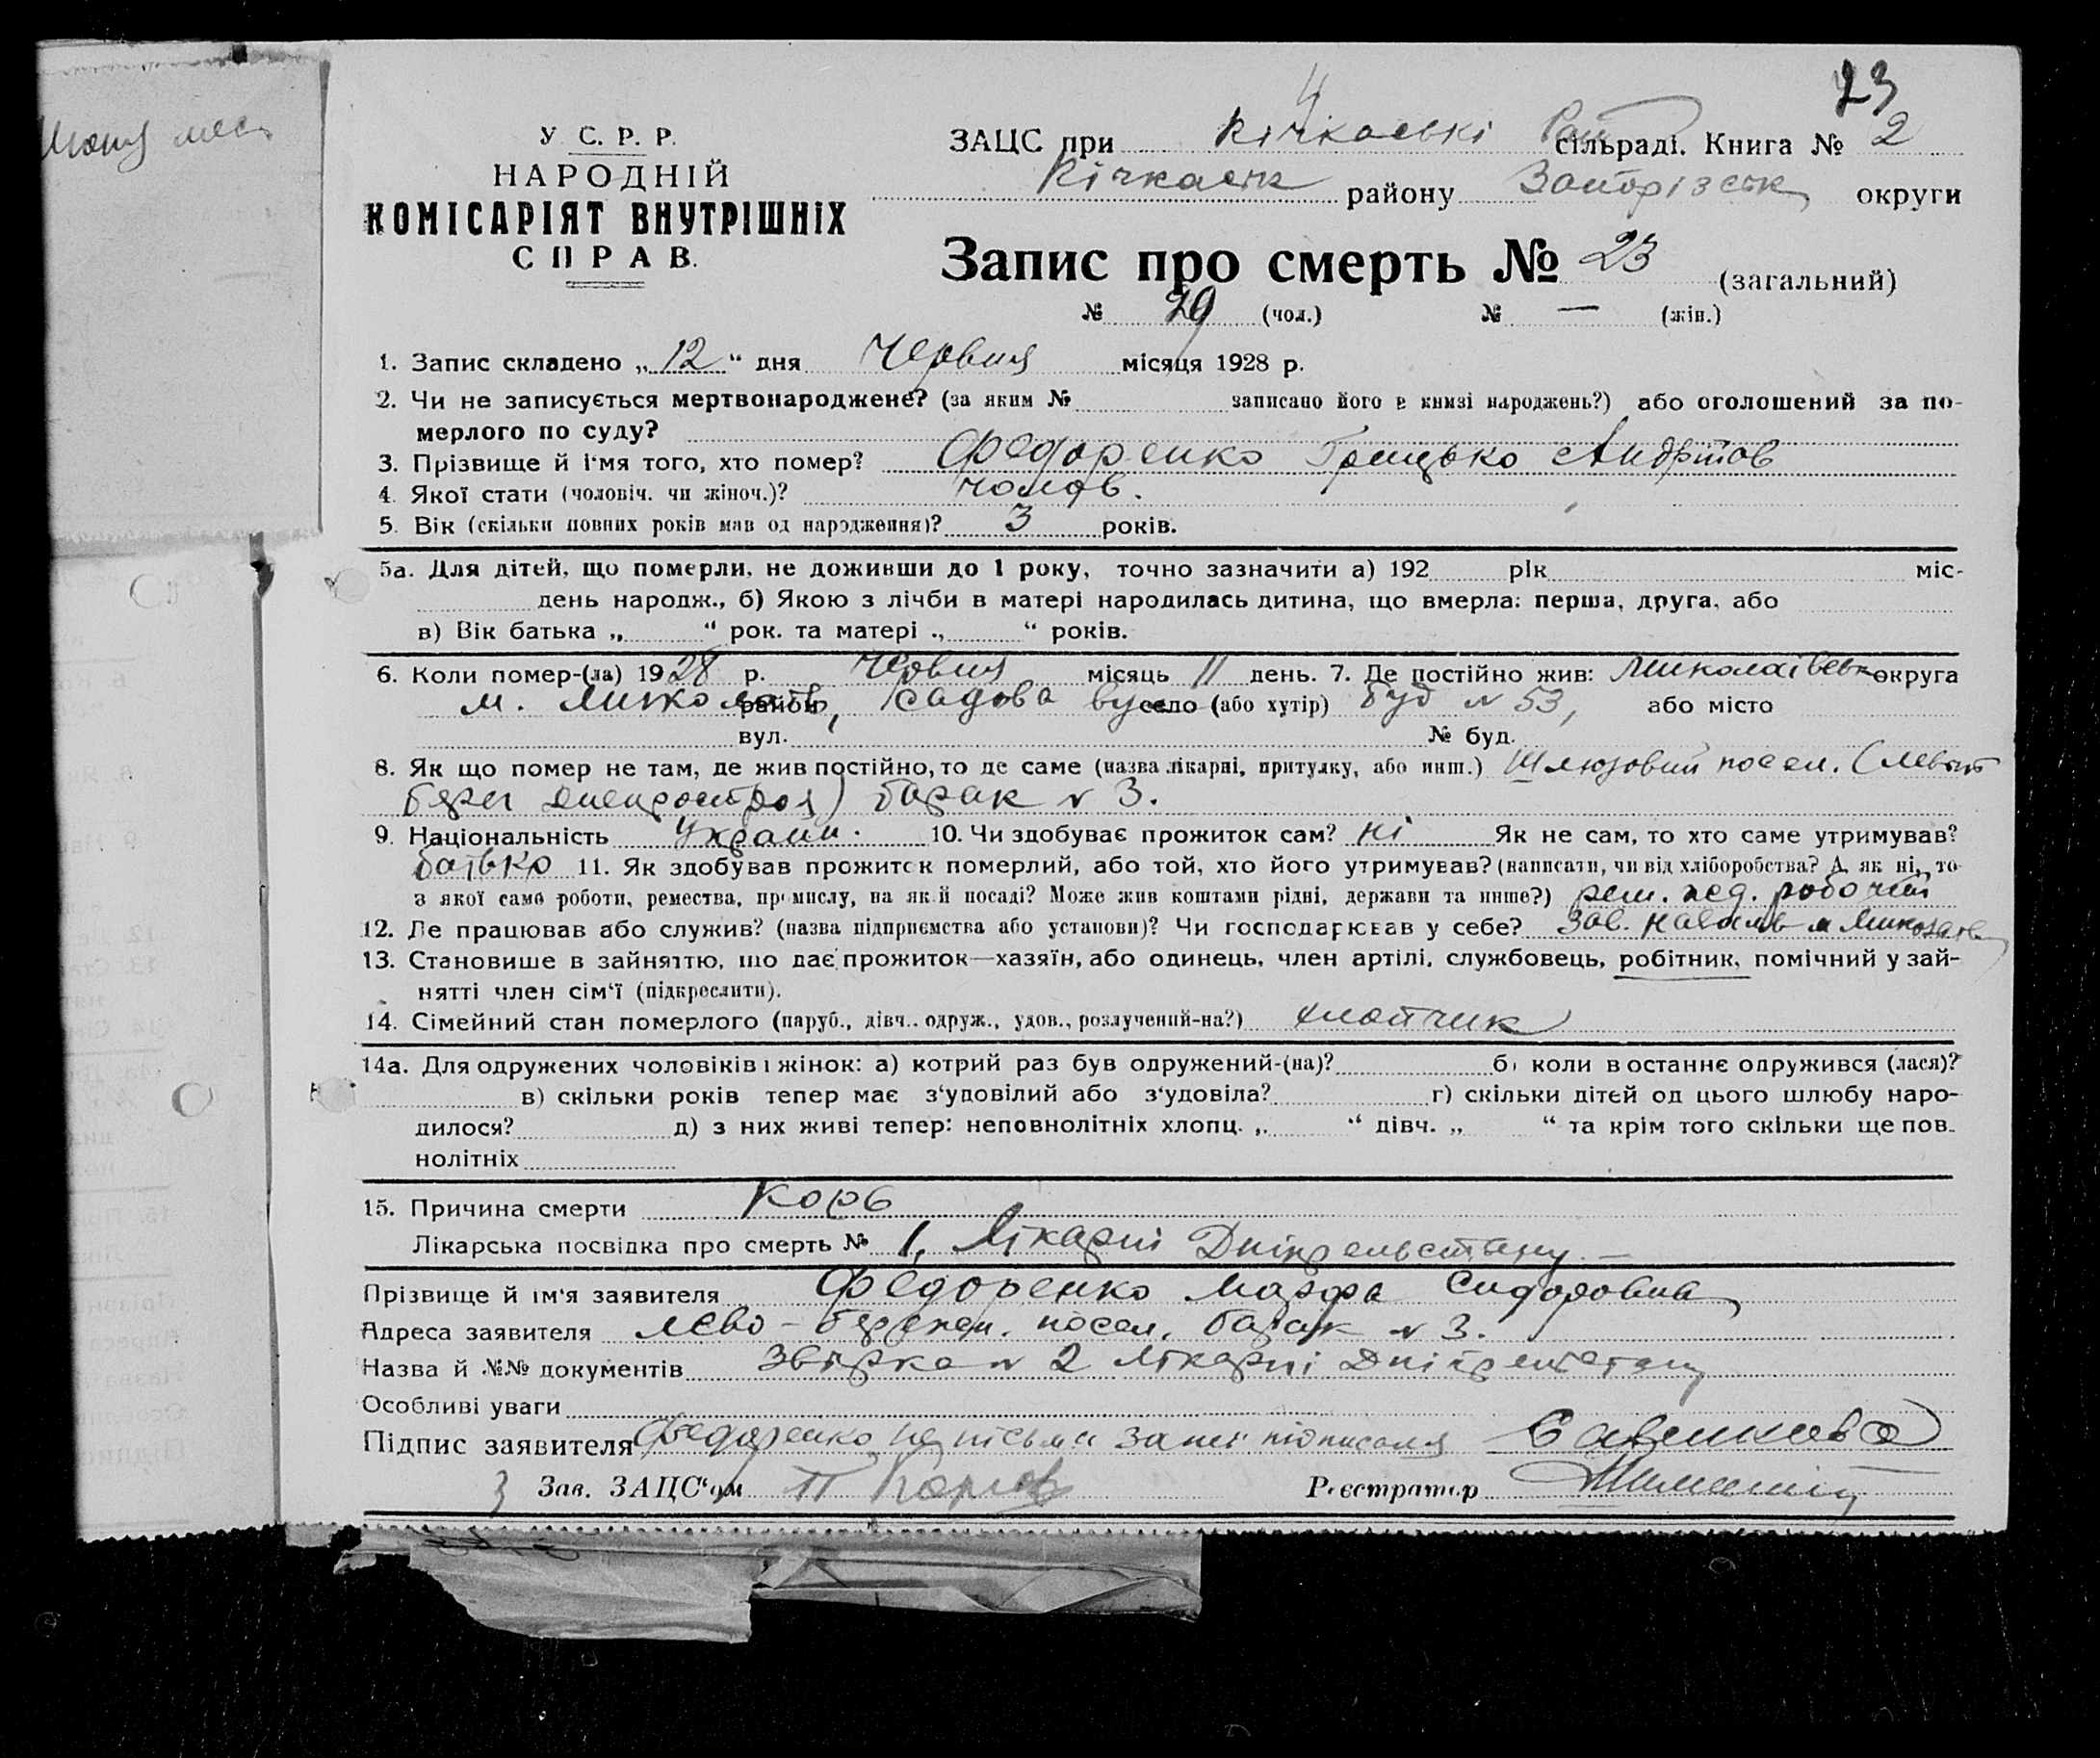 23
У. С. Р. Р.
НАРОДНІЙ
КОМІСАРІЯТ ВНУТРІШНІХ
СПРАВ.
ЗАЦС при Кічкаські сільраді. Книга № 2
Кічкаськ району Запорізськ округи
Запис про смерть № 23 (загальний)
№ 29 (чол.) № — (жін.)
1. Запис складено „12“ дня Червня місяця 1928 р.
2. Чи не записується мертвонароджене? (за яким № записано його в книзі народжень?) або оголошений за по-
мерлого по суду?
3. Прізвище й і'мя того, хто помер? Федоренко Грицько
4. Якої стати (чоловіч. чи жіноч.)? чолов.
5. Вік (скільки повних років мав од народження)? 3 років.
5а. Для дітей, що померли, не доживши до 1 року, точно зазначити а) 192 рік міс-
день народж., б) Якою з лічби в матері народилась дитина, що вмерла: перша, друга, або
в) Вік батька „ “ рок. та матері „ “ років.
6. Коли помер-(ла) 1928 р. Червня місяць 11 день. 7. Де постійно жив: Миколаївськ округа
м. район, Садова вул село (або хутір) буд № 53, або місто
вул. № буд.
8. Як що помер не там, де жив постійно, то де саме (назва лікарні, притулку, або инш.) Шлюзовий посел. (левый
берег Днепростроя) барак № 3.
9. Національність Україн. 10. Чи здобуває прожиток сам? ні Як не сам, то хто саме утримував?
батько 11. Як здобував прожиток померлий, або той, хто його утримував? (написати, чи від хліборобства? А, як ні, то
з якої само роботи, ремества, промислу, на якій посаді? Може жив коштами рідні, держави та инше?) робочий
12. Де працював або служив? (назва підприємства або установи)? Чи господарював у себе? Зав.
13. Становише в зайняттю, що дає прожиток—хазяїн, або одинець, член артілі, службовець, робітник, помічний у зай-
нятті член сім'ї (підкреслити).
14. Сімейний стан померлого (паруб., дівч.. одруж., удов., розлучений-на?) хлопчик
14а. Для одружених чоловіків і жінок: а) котрий раз був одружений-(на)? б) коли востаннє одружився (лася)?
в) скільки років тепер має з'удовілий або з'удовіла? г) скільки дітей од цього шлюбу наро-
дилося? д) з них живі тепер: неповнолітніх хлопц. „ “ дівч. „ “ та крім того скільки ще пов-
нолітніх
15. Причина смерти Корь
Лікарська посвідка про смерть № 1, Лікарні Дніпрельстану. —
Прізвище й ім'я заявителя Федоренко Марфа Сидоровна
Адреса заявителя лєво - бережн. посел. барак № 3.
Назва й №№ документів № 2 Лікарні
Особливі уваги
Підпис заявителя Федоренко
Зав. ЗАЦС'ом
Реєстратор